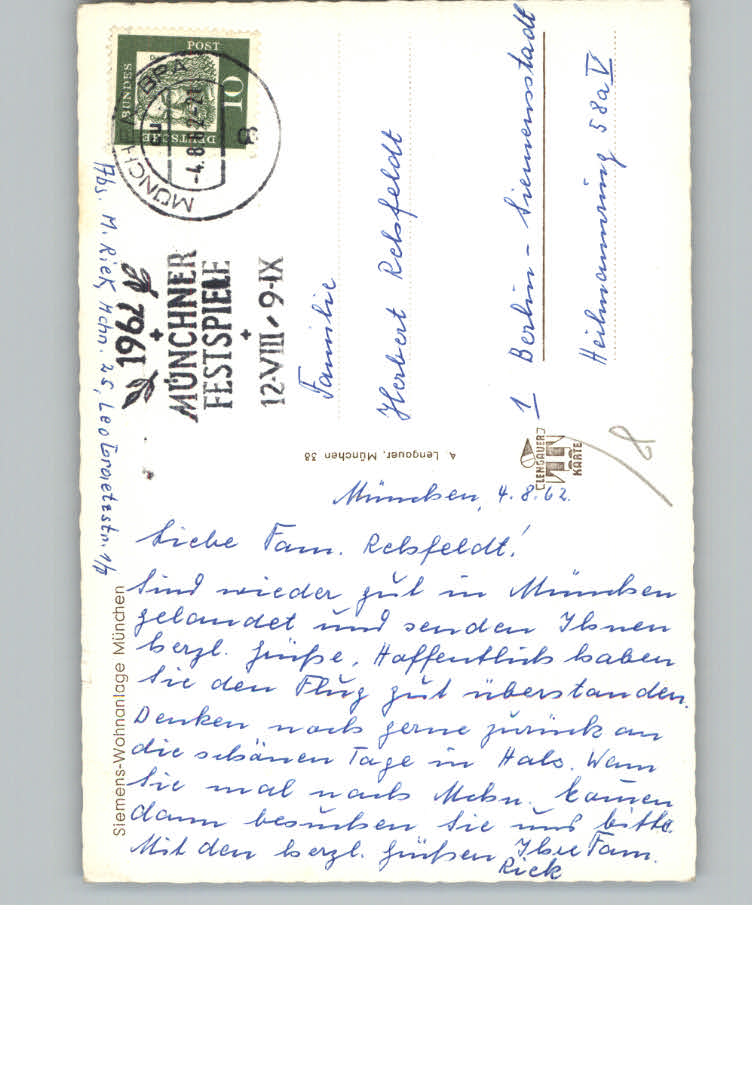 Siemens-Wohnanlage München
München, 4.8.62.
Liebe Fam. Rehsfeldt!
Sind wieder gut in München
gelandet und senden Ihnen
herzl. Grüße, Hoffentlich haben
Sie den Flug gut überstanden.
Denken noch gerne zurück an
die schönen Tage in Hals. Wann
Sie mal nach Mchn. kommen
dann besuchen Sie uns bitte.
Mit den herzl. Grüßen Ihre Fam.
Riek
Abs. M. Riek, Mchn. 25, Leo Graetzstr. 1/7
A. Lengauer, München 38
LENGAUER
KARTE
DEUTSCHE BUNDES POST
10
MÜNCHEN
-4.8.62-21
8
1962
MÜNCHNER
FESTSPIELE
12·VIII - 9·IX
Familie
Herbert Rehsfeldt
1 Berlin - Siemensstadt
Heilmannring 58a V
8